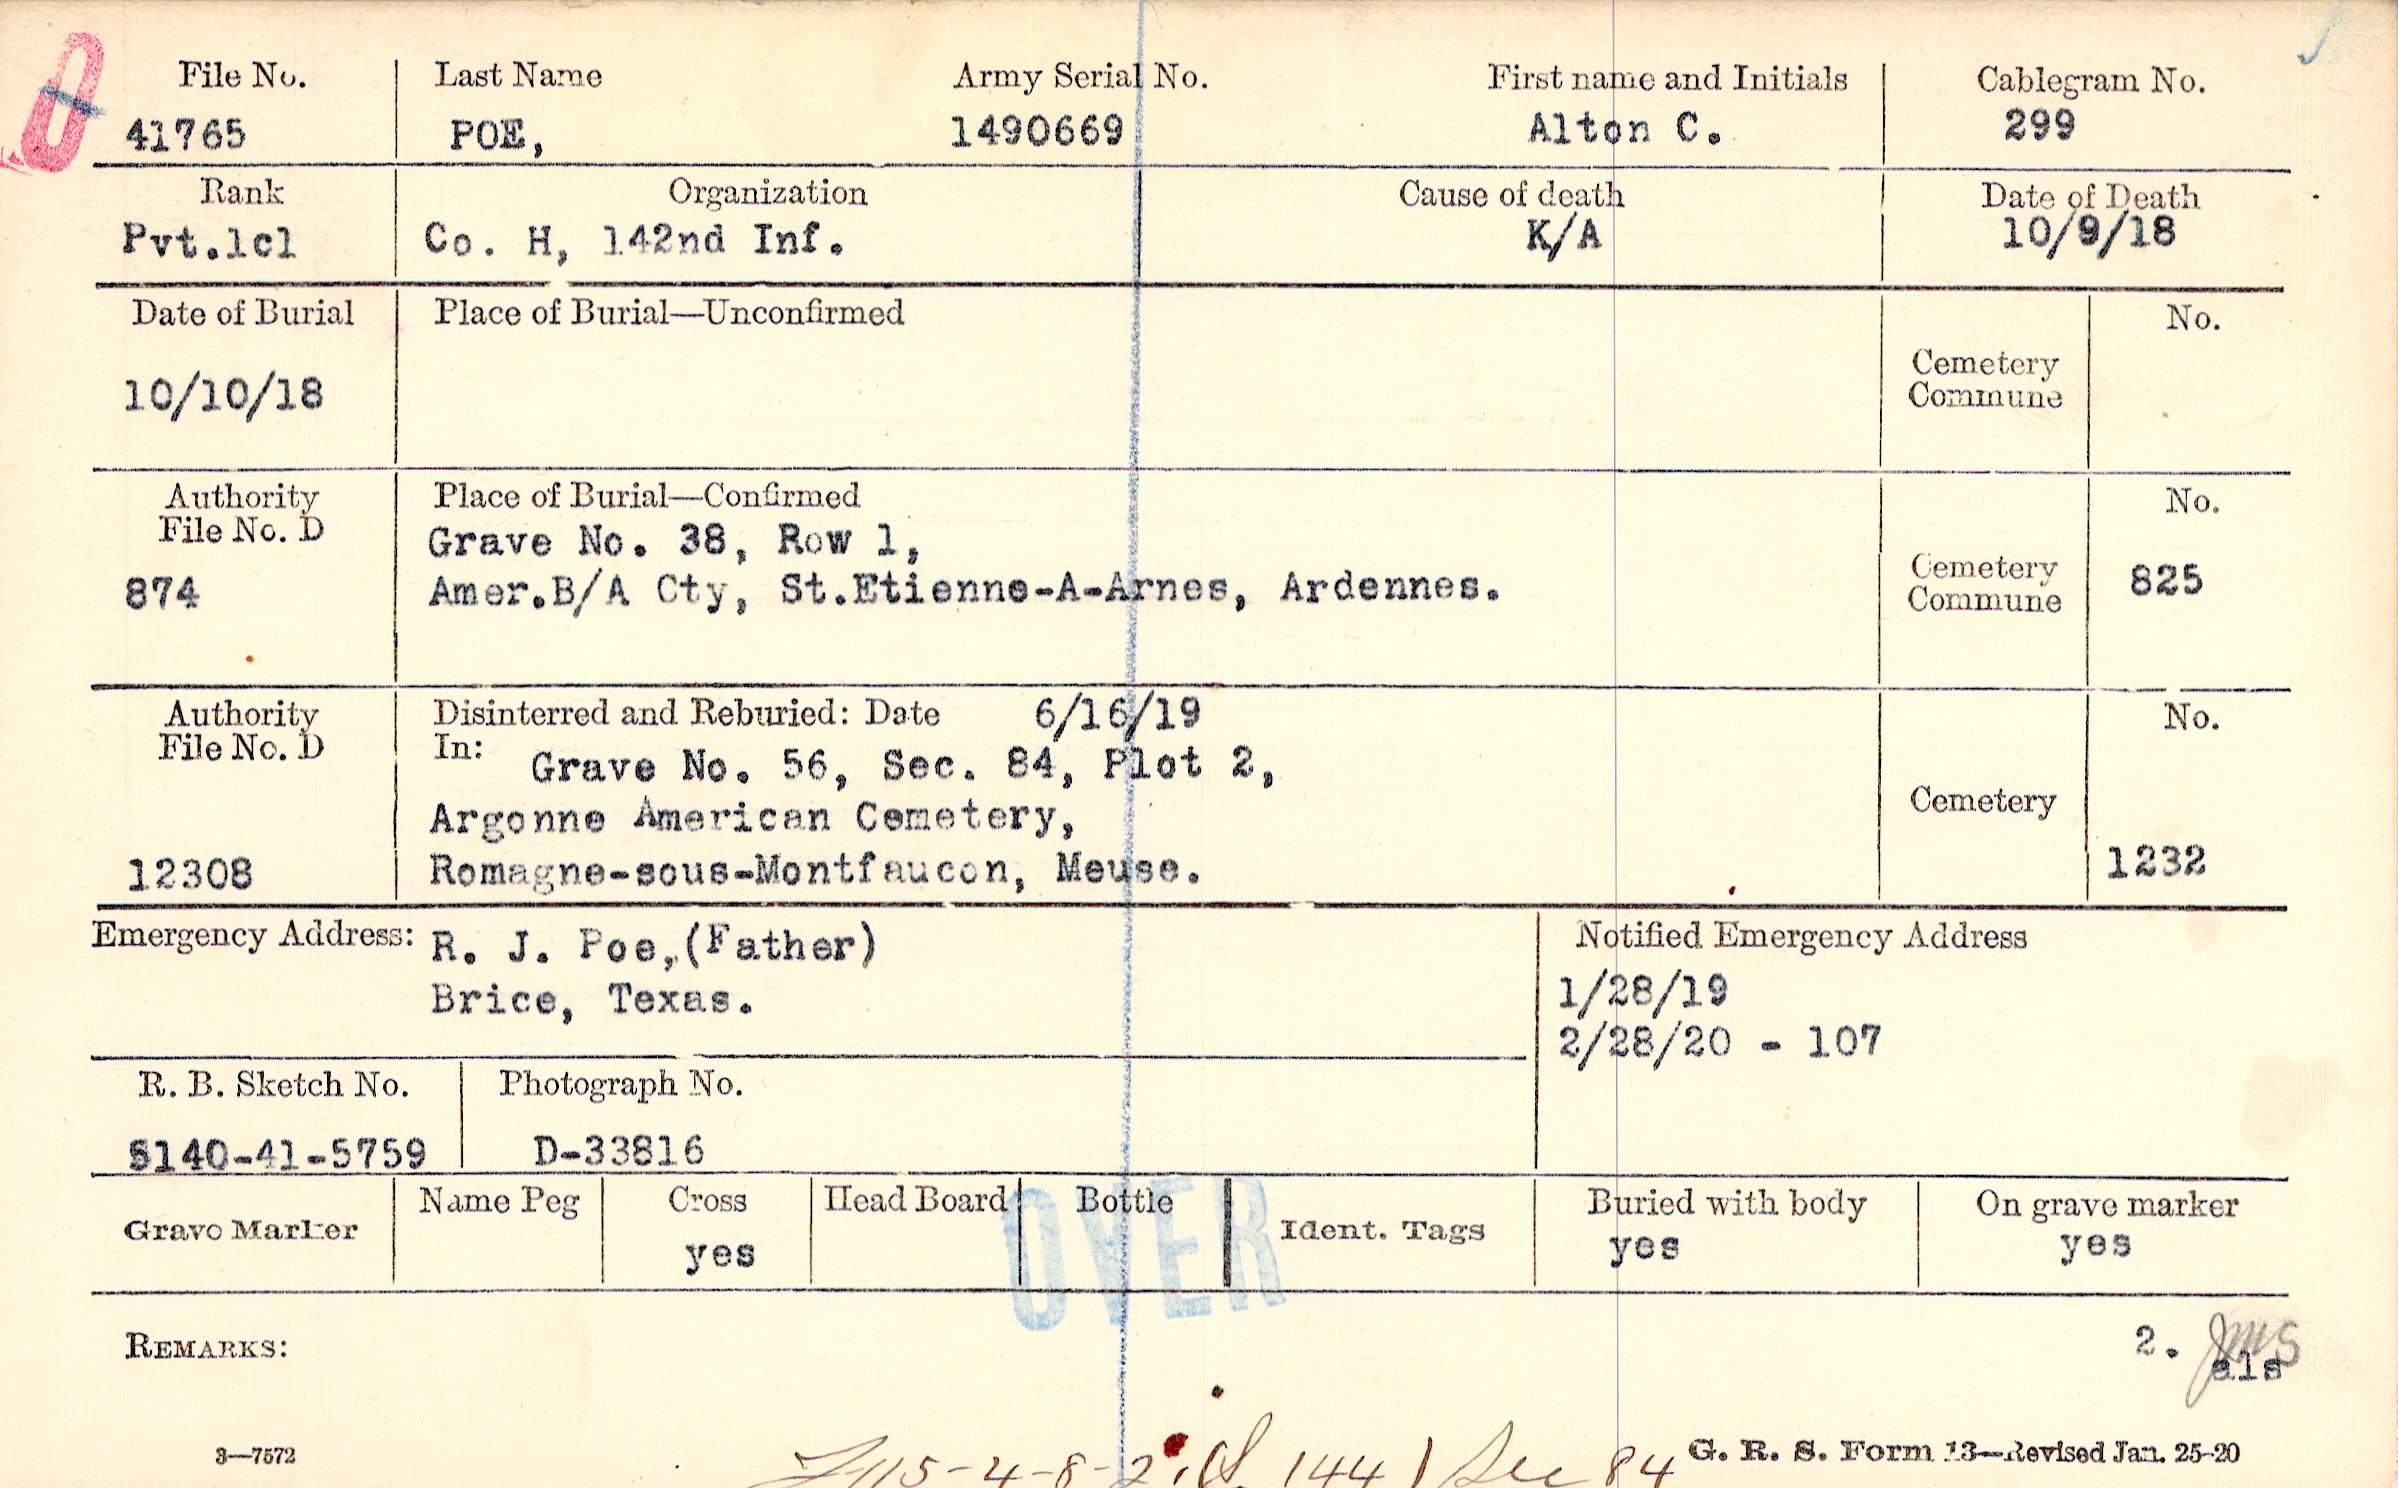 File No. Last Name Army Serial No. First name and Initials Cablegram No.
41765 POE, 1490669 Alton C. 299
Rank Organization Cause of death Date of Death
Pvt.1cl Co. H, 142nd Inf. K/A 10/9/18
Date of Burial Place of Burial—Unconfirmed No.
Cemetery
Commune
10/10/18
Authority Place of Burial—Confirmed No.
File No. D
Grave No. 38, Row 1,
874 Amer.B/A Cty, St.Etienne-A-Arnes, Ardennes.
Cemetery 825
Commune
Authority Disinterred and Reburied: Date 6/16/19 No.
File No. D In: Grave No. 56, Sec. 84, Plot 2,
Argonne American Cemetery, Cemetery
12308 Romagne-sous-Montfaucon, Meuse. 1232
Emergency Address: R. J. Poe,(Father) Notified Emergency Address
Brice, Texas. 1/28/19
2/28/20 - 107
R. B. Sketch No. Photograph No.
S140-41-5759 D-33816
Grave Marker Name Peg Cross Head Board Bottle Ident. Tags Buried with body On grave marker
yes yes yes
OVER
REMARKS: 2. JMS
als
3—7572 144 Sec 84 G. R. S. Form 13—Revised Jan. 25-20